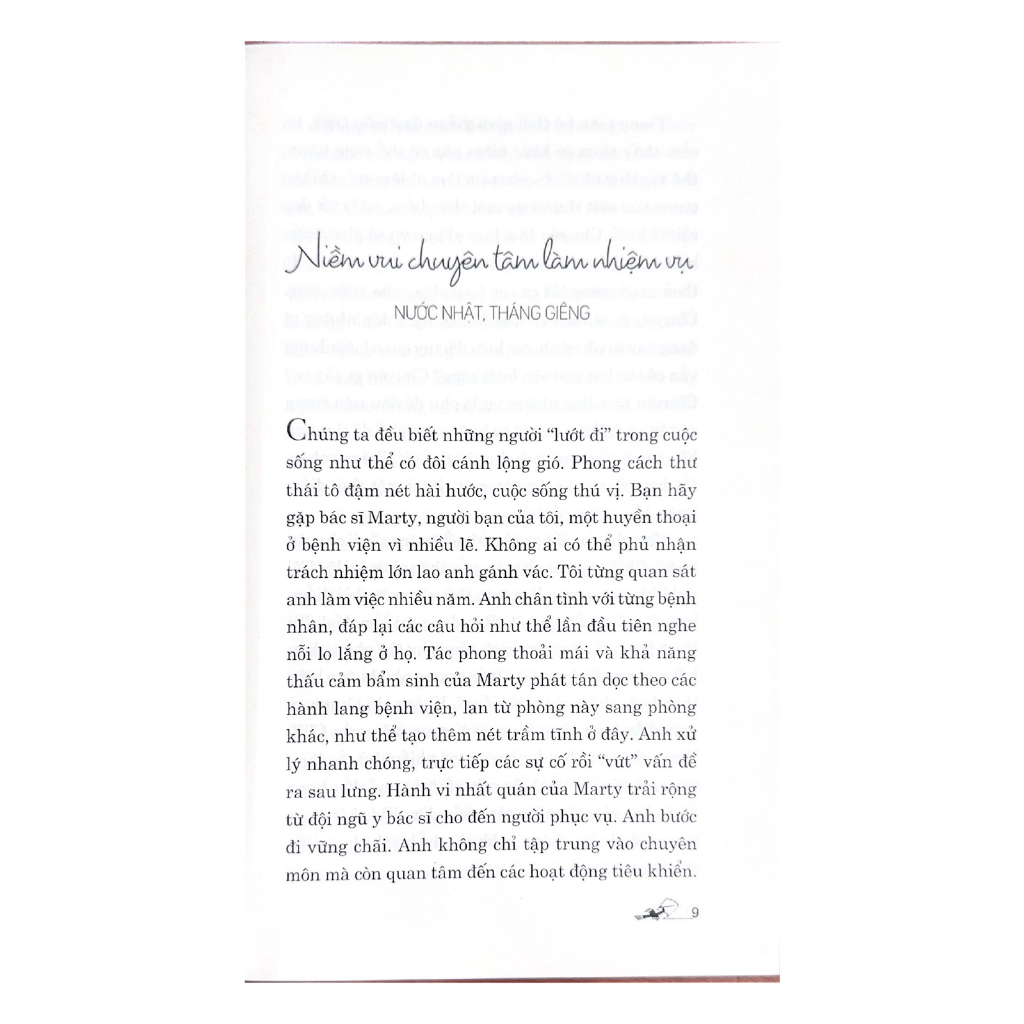 Niềm vui chuyên tâm làm nhiệm vụ
NƯỚC NHẬT, THÁNG GIÊNG
Chúng ta đều biết những người “lướt đi” trong cuộc
sống như thể có đôi cánh lộng gió. Phong cách thư
thái tô đậm nét hài hước, cuộc sống thú vị. Bạn hãy
gặp bác sĩ Marty, người bạn của tôi, một huyền thoại
ở bệnh viện vì nhiều lẽ. Không ai có thể phủ nhận
trách nhiệm lớn lao anh gánh vác. Tôi từng quan sát
anh làm việc nhiều năm. Anh chân tình với từng bệnh
nhân, đáp lại các câu hỏi như thể lần đầu tiên nghe
nỗi lo lắng ở họ. Tác phong thoải mái và khả năng
thấu cảm bẩm sinh của Marty phát tán dọc theo các
hành lang bệnh viện, lan từ phòng này sang phòng
khác, như thể tạo thêm nét trầm tĩnh ở đây. Anh xử
lý nhanh chóng, trực tiếp các sự cố rồi “vứt” vấn đề
ra sau lưng. Hành vi nhất quán của Marty trải rộng
từ đội ngũ y bác sĩ cho đến người phục vụ. Anh bước
đi vững chãi. Anh không chỉ tập trung vào chuyên
môn mà còn quan tâm đến các hoạt động tiêu khiển.
9